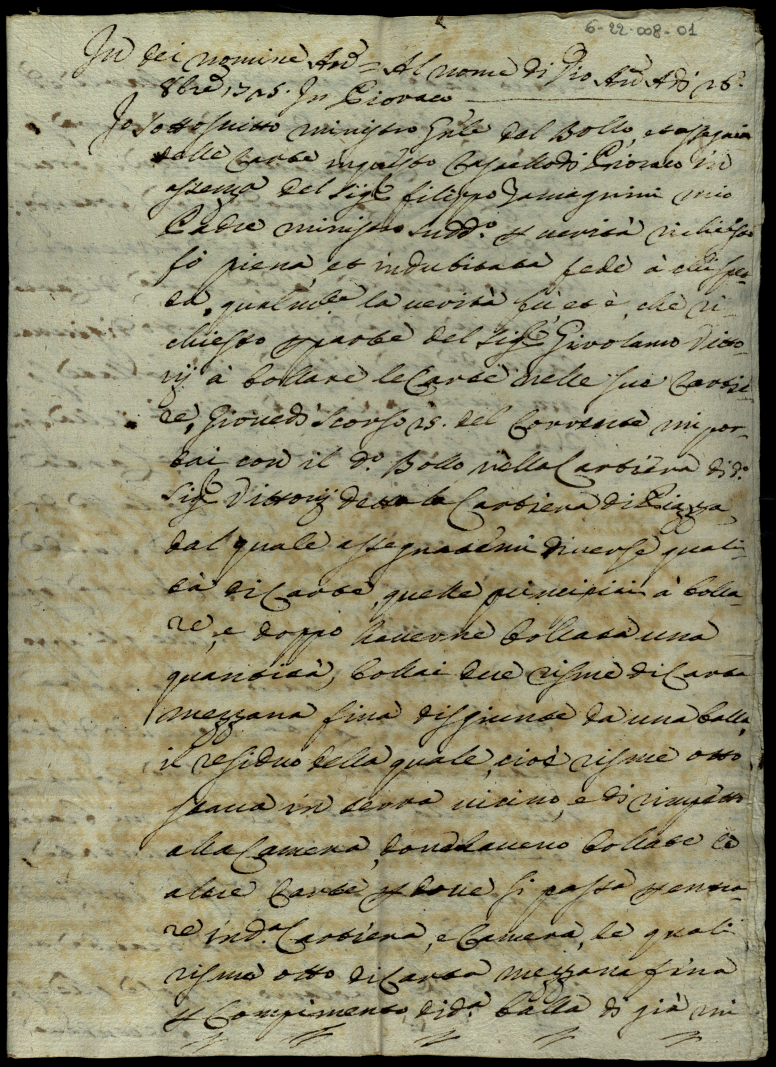 6-22-008-01
In dei nomine Am̃ = Al nome di Dio Am̃ Adi 28.
8bre 1725. In Pioraco
Io sottoscritto ministro Gnle del Bollo, et assegnia
delle Carte in questo Castello di Pioraco in
assenza del Sigr̃ filippo Zamagnini mio
Padre ministro sudd.o p verità richiesto
fò piena, et indubitata fede à chi spet-
ta, qualm.te la verità fù, et è, che ri-
chiesto p parte del Sigr̃ Girolamo Vitto-
rij à bollare le Carte nelle sue Cartie-
re, Giovedì scorso 25. del Corrente mi por-
tai con il d.o Bollo nella Cartiera di d.o
Sigr̃ Vittorij detta la Cartiera di Piazza
dal quale assegnatemi diverse quali-
tà di Carte, quelle principiai à bolla-
re, e doppo haverne bollata una
quantità, bollai due risme di Carta
mezzana fina disgiunte da una balla,
il residuo della quale, cioè risme otto
stava in terra vicino, e di rimpetto
alla Camera, dove havevo bollate le
altre Carte p dove si passa p entra-
re in d.a Cartiera, e Camera, le quali
risme otto di Carta mezzana fina
p Compimento di d.a balla di già mi